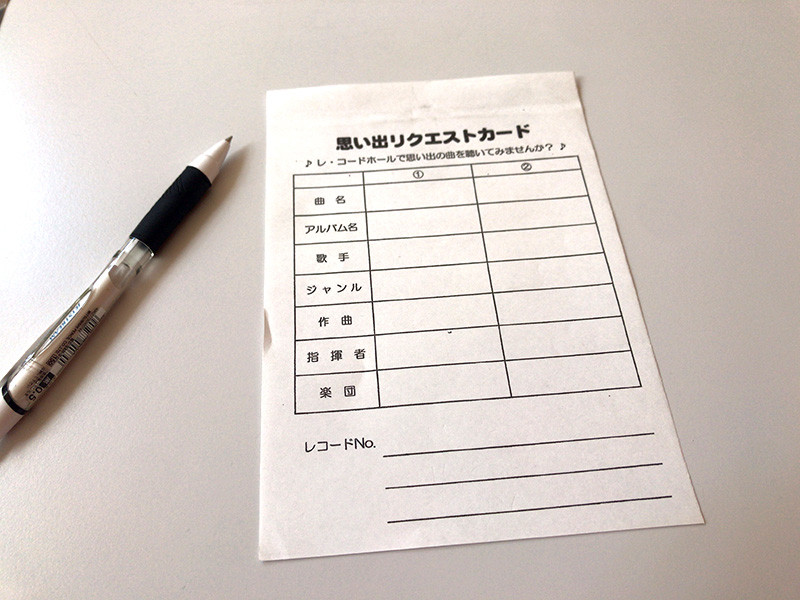 思い出リクエストカード
♪レ・コードホールで思い出の曲を聴いてみませんか？♪
① ②
曲 名
アルバム名
歌 手
ジャンル
作 曲
指 揮 者
楽 団
レコードNo.
0.5